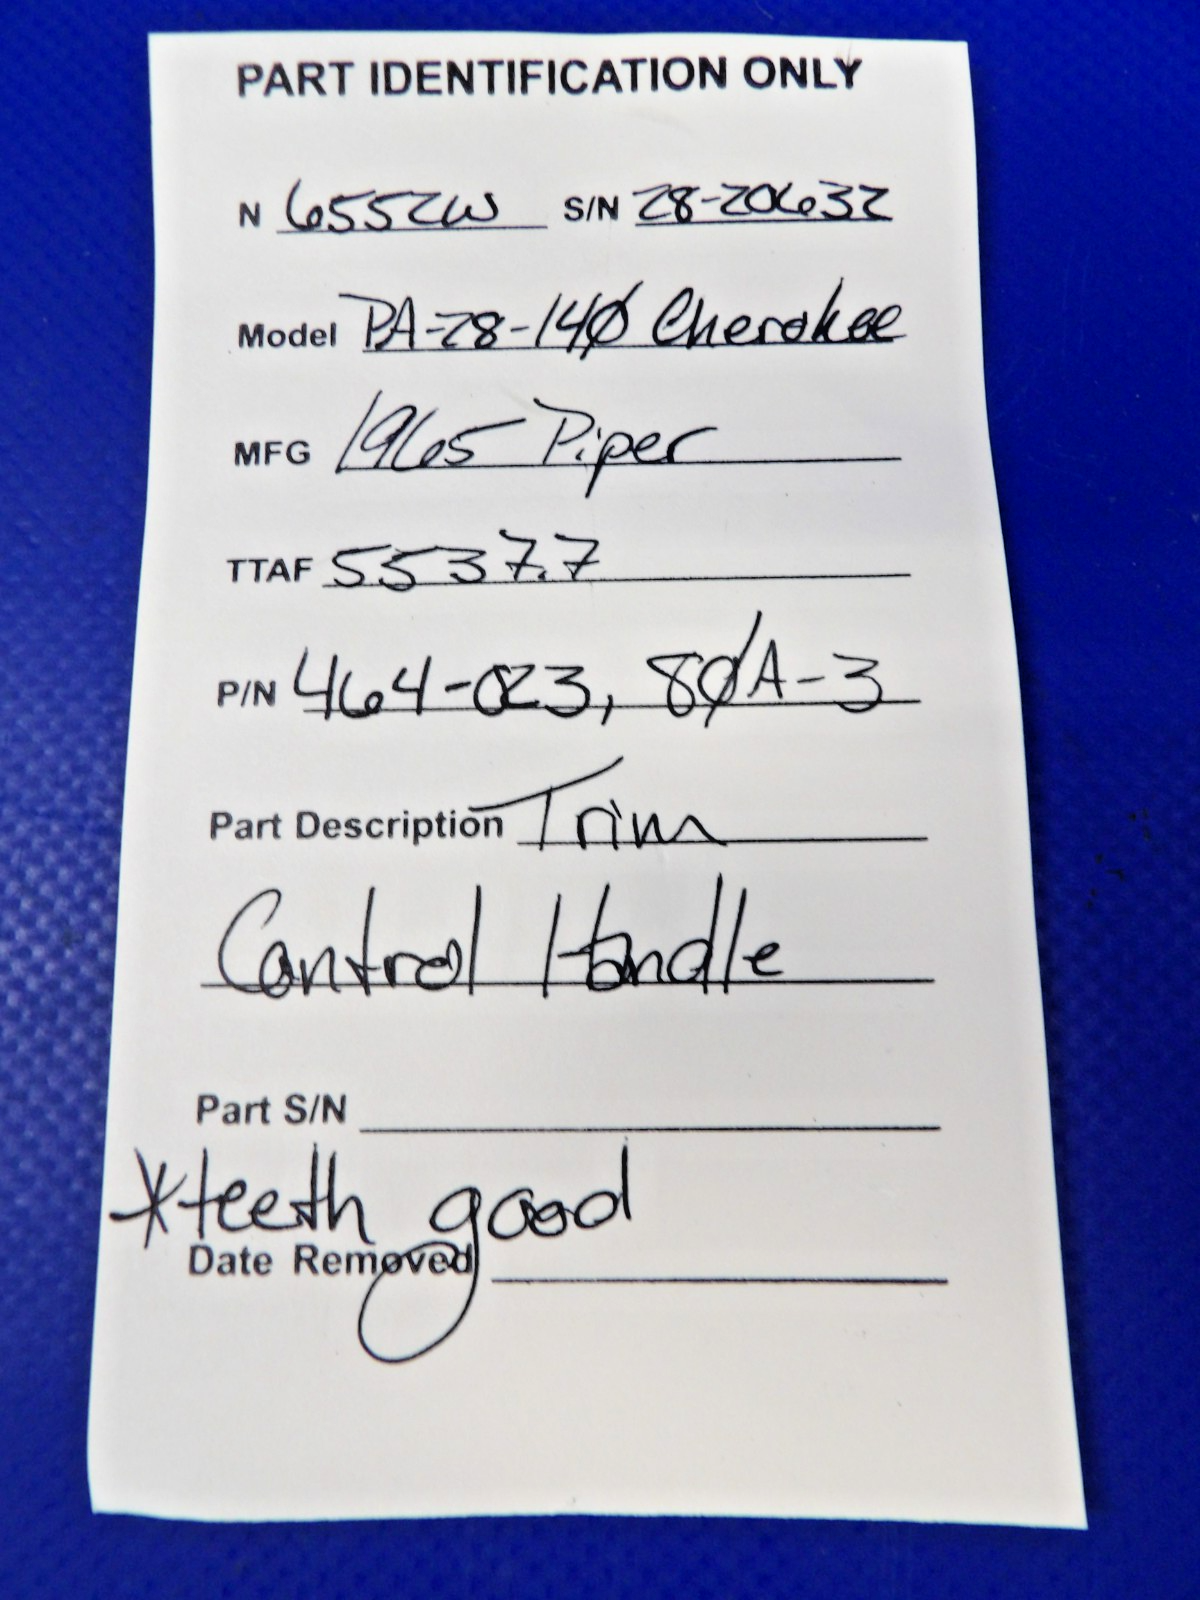 PART IDENTIFICATION ONLY
N 6552W S/N 28-20632
Model PA-28-140 Cherokee
MFG 1965 Piper
TTAF 5537.7
P/N 464-023, 80A-3
Part Description Trim
Control Handle
Part S/N
*teeth good
Date Removed